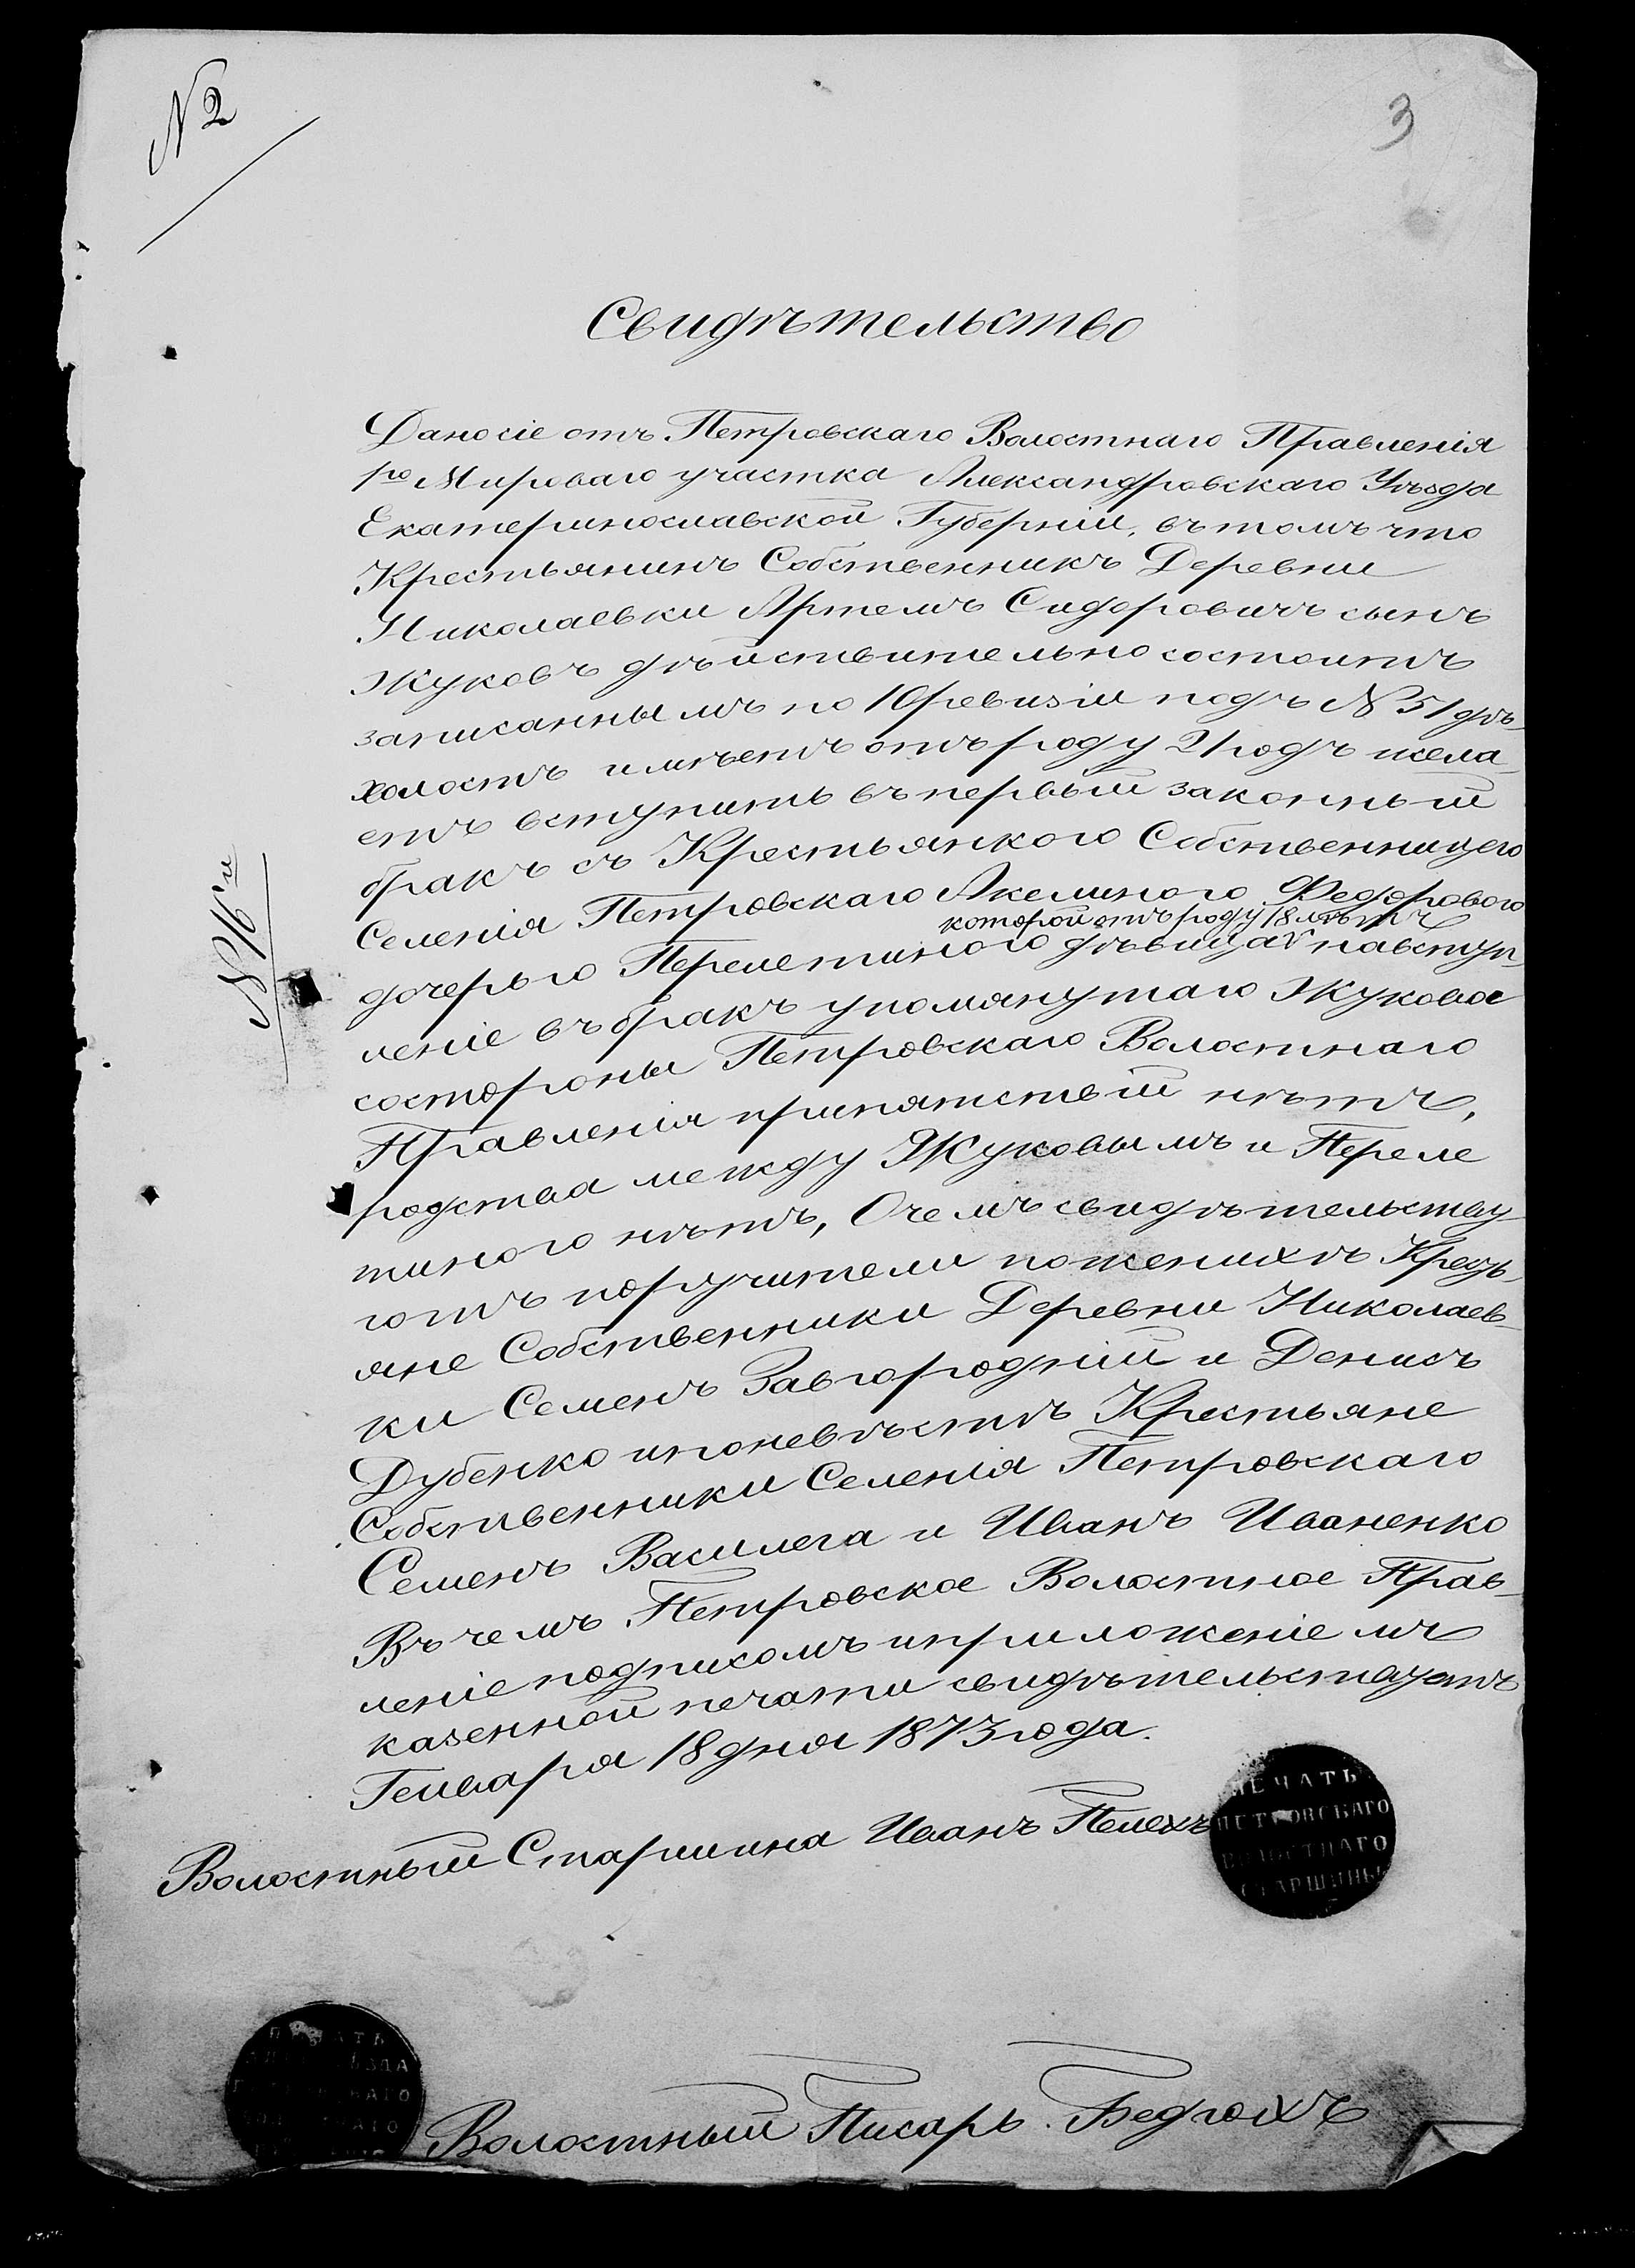 № 2
3
Свидѣтельство
Дано сіе отъ Петровскаго Волостнаго Правленія
1го Мироваго участка Александровскаго Уѣзда
Екатеринославской Губерніи, въ томъ что
Крестьянинъ Собственникъ Деревни
Николаевки Артемъ Сидоровичъ сынъ
Жуковъ дѣйствительно состоитъ
записаннымъ по 10 ревизіи подъ № 51 дѣ-
холостъ имѣетъ отъ роду 21 годъ жела-
етъ вступить въ первый законный
бракъ съ Крестьянкою Собственницею
Селенія Петровскаго Акелиною Федоровою
которой отъ роду 18 лѣтъ
дочерью Перелетиною дѣвица v на вступ-
леніе въ бракъ упомянутаго Жукова
состороны Петровскаго Волостнаго
Правленія припятствій нѣтъ,
родства между Жуковымъ и Переле
тиною нѣтъ, О чемъ свидѣтельству-
ютъ поручители по женихѣ Кресть-
яне Собственники Деревни Николаев-
ки Семенъ Завгородній и Денисъ
Дубенко и поневѣстѣ Крестьяне
Собственники Селенія Петровскаго
Семенъ Василега и Иванъ Иваненко
Въ чемъ Петровское Волостное Прав-
леніе подписомъ и приложеніемъ
казенной печати свидѣтельствуетъ
Генваря 18 дня 1873 года.
№ 16й
Волостный Старшина Иванъ Пелехъ
ПЕЧАТЬ
ПЕТРОВСКАГО
ВОЛОСТНАГО
СТАРШИНЫ
ПЕЧАТЬ
Волостный Писарь